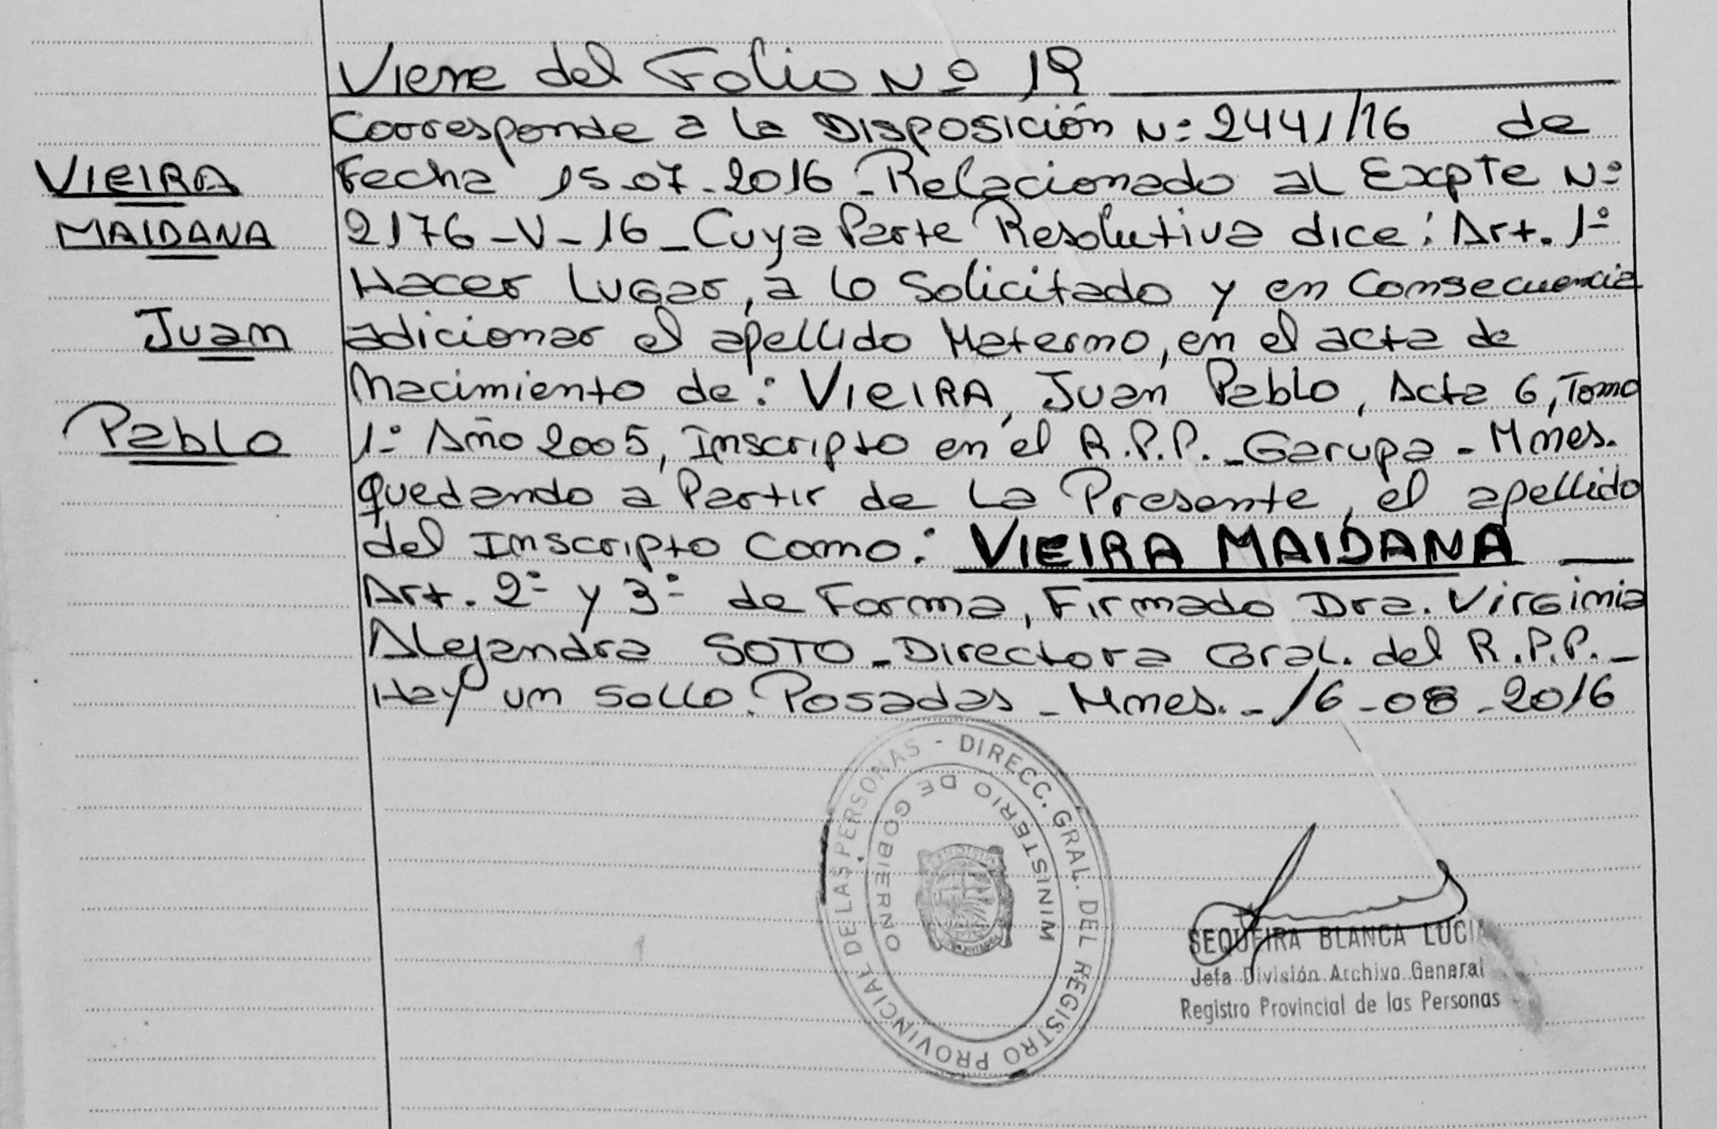 Viene del Folio Nº 19
Corresponde a la Disposición Nº 2441/16 de
Fecha 15.07-2016-Relacionado al Expte Nº
2176-V-16-Cuya Parte Resolutiva dice: Art. 1º
Hacer Lugar, a lo Solicitado y en Consecuencia
adicionar el apellido Materno, en el acta de
Nacimiento de: VIEIRA, Juan Pablo, Acta 6, Tomo
1º Año 2005, Inscripto en el R.P.P.-Garupa-Mnes.
quedando a Partir de La Presente, el apellido
del Inscripto Como: VIEIRA MAIDANA
Art. 2º y 3º de Forma, Firmado Dra. Virginia
Alejandra SOTO-Directora Gral. del R.P.P.-
Hay un sello. Posadas-Mnes.-16-08-2016
VIEIRA
MAIDANA
Juan
Pablo
DIRECC. GRAL. DEL REGISTRO PROVINCIAL DE LAS PERSONAS -
MINISTERIO DE GOBIERNO
SEQUEIRA BLANCA LUCIA
Jefa División Archivo General
Registro Provincial de las Personas